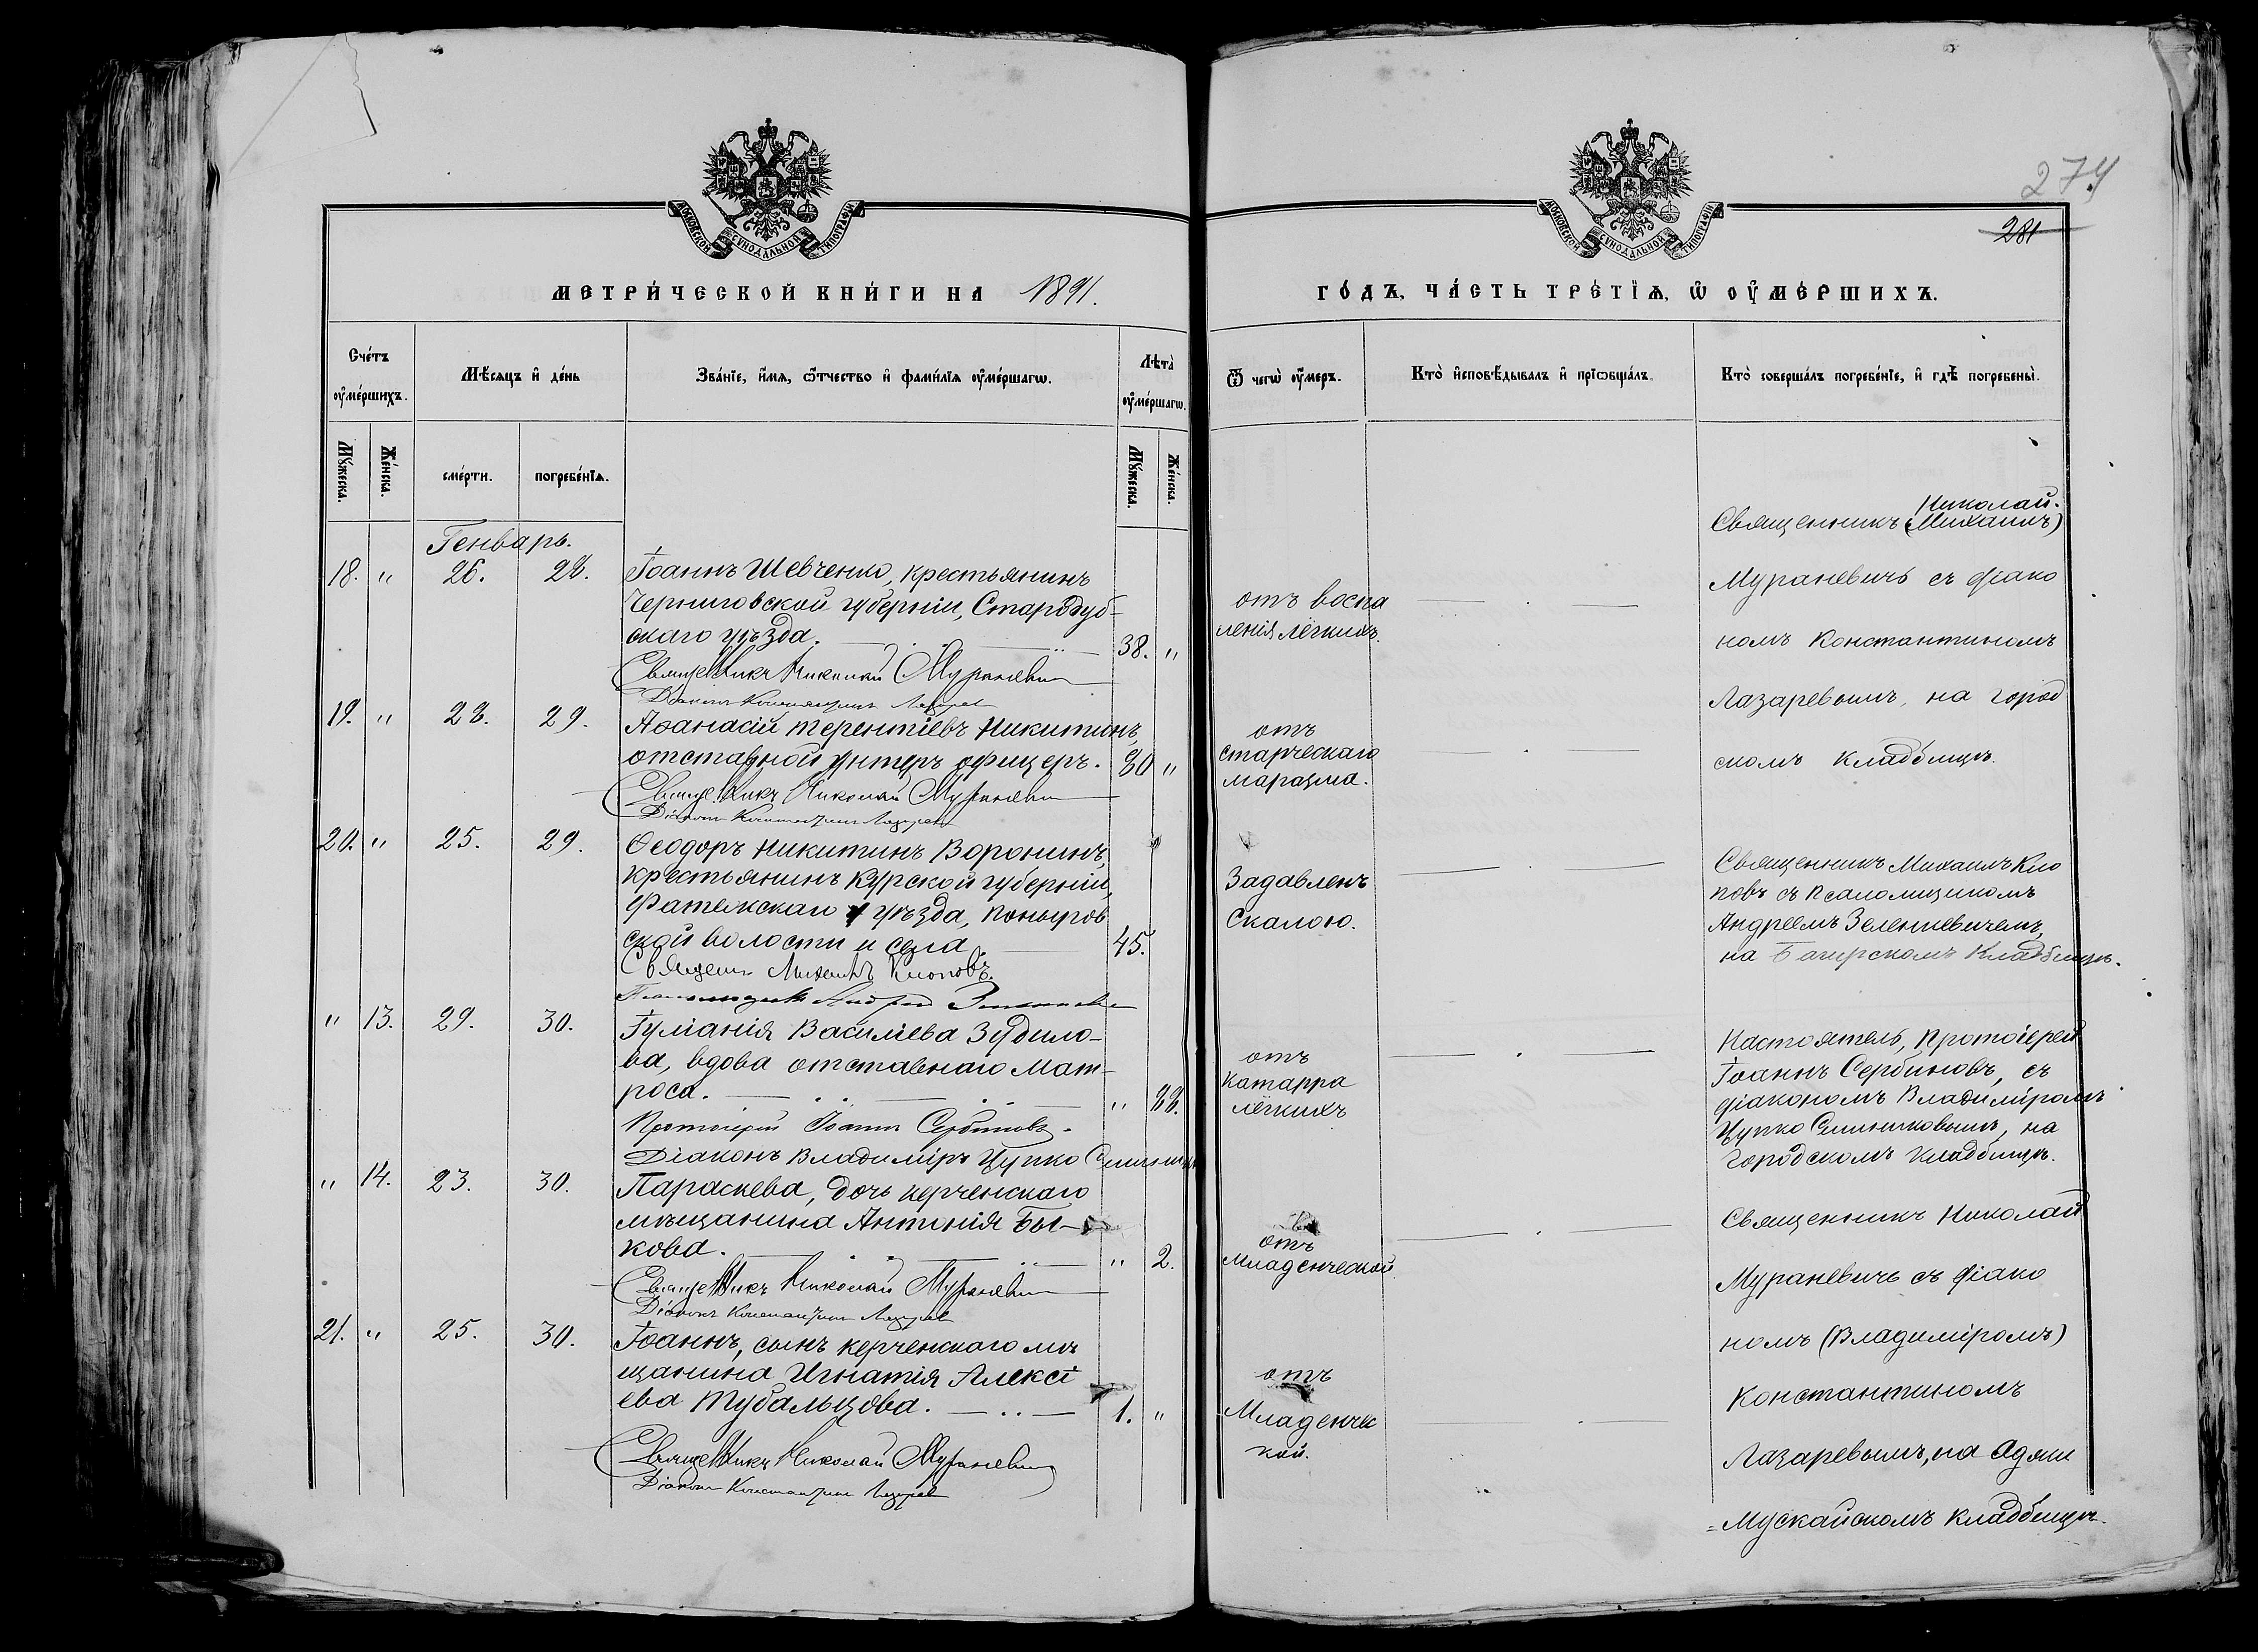 274
281
МОСКОВСКОЙ СѴНОДАЛЬНОЙ ТИПОГРАФІИ
МОСКОВСКОЙ СѴНОДАЛЬНОЙ ТИПОГРАФІИ
МЕТРИ́ЧЕСКОЙ КНИ́ГИ НА 1891.
ГО́ДЪ, ЧА́СТЬ ТРЕ́ТІѦ, Ѡ҆ ОУ҆МЕ́РШИХЪ.
Сче́тъ оу҆ме́ршихъ.
Мѣ́сяцъ и҆ де́нь
Зва́нїе, и҆́мѧ, ѻ҆́тчество и҆ фами́лїѧ оу҆ме́ршагѡ.
Лѣта̀ оу҆ме́ршагѡ.
Ѿ чегѡ̀ оу҆́меръ.
Кто̀ и҆сповѣ́дывалъ и҆ прїѡбща́лъ.
Кто̀ соверша́лъ погребе́нїе, и҆ гдѣ̀ погребены̀.
Му́жеска.
Же́нска.
сме́рти.
погребе́нїѧ.
Му́жеска.
Же́нска.
Генварь.
18. " 26. 28. Іоаннъ Шевченко, крестьянинъ
Черниговской губерніи, Стародуб-
скаго уѣзда. 38. "
Священникъ Николай Мураневич
Діаконъ Константинъ Лазарев
отъ воспа
ленія лёгкихъ.
Николай.
Священникъ (Михаилъ)
Мураневичъ съ діако
номъ Константиномъ
Лазаревымъ, на город
скомъ кладбищѣ.
19. " 28. 29. Аѳанасій Терентіевъ Никитинъ,
отставной унтеръ офицеръ. 80 "
Священникъ Николай Мураневич
Діаконъ Константинъ Лазарев
отъ
старческаго
маразма.
20. " 25. 29. Ѳеодоръ Никитинъ Воронинъ,
крестьянинъ Курской губерніи,
Фатежскаго уѣзда, Поныров
ской волости и села. 45.
Священ. Михаилъ Клоповъ.
Псаломщикъ Андрей
Задавленъ
Скалою.
Священникъ Михаилъ Кло
повъ съ Псаломщикомъ
Андреемъ Зеленкевичемъ,
на Багерскомъ Кладбищѣ.
" 13. 29. 30. Іуліанія Василіева Зубило-
ва, вдова отставнаго мат-
роса. " 88.
Протоіерей Іоаннъ Сербиновъ.
Діаконъ Владиміръ Цупко
отъ
катарра
лёгкихъ
Настоятель, Протоіерей
Іоаннъ Сербиновъ, съ
діакономъ Владиміромъ
Цупко на
Городскомъ кладбищѣ.
" 14. 23. 30. Параскева, дочь керченскаго
мѣщанина Антонія Бы-
кова. " 2.
Священникъ Николай Мураневич
Діаконъ Константинъ Лазарев
отъ
младенческой
Священникъ Николай
Мураневичъ съ діако
номъ (Владиміромъ)
Константиномъ
Лазаревымъ, на Аджи
=Мускайскомъ кладбищѣ.
21. " 25. 30. Іоаннъ, сынъ керченскаго мѣ
щанина Игнатія Алексі
ева Тубальцова. 1. "
Священникъ Николай Мураневич
Діаконъ Константинъ Лазарев
отъ
Младенчес
кой.